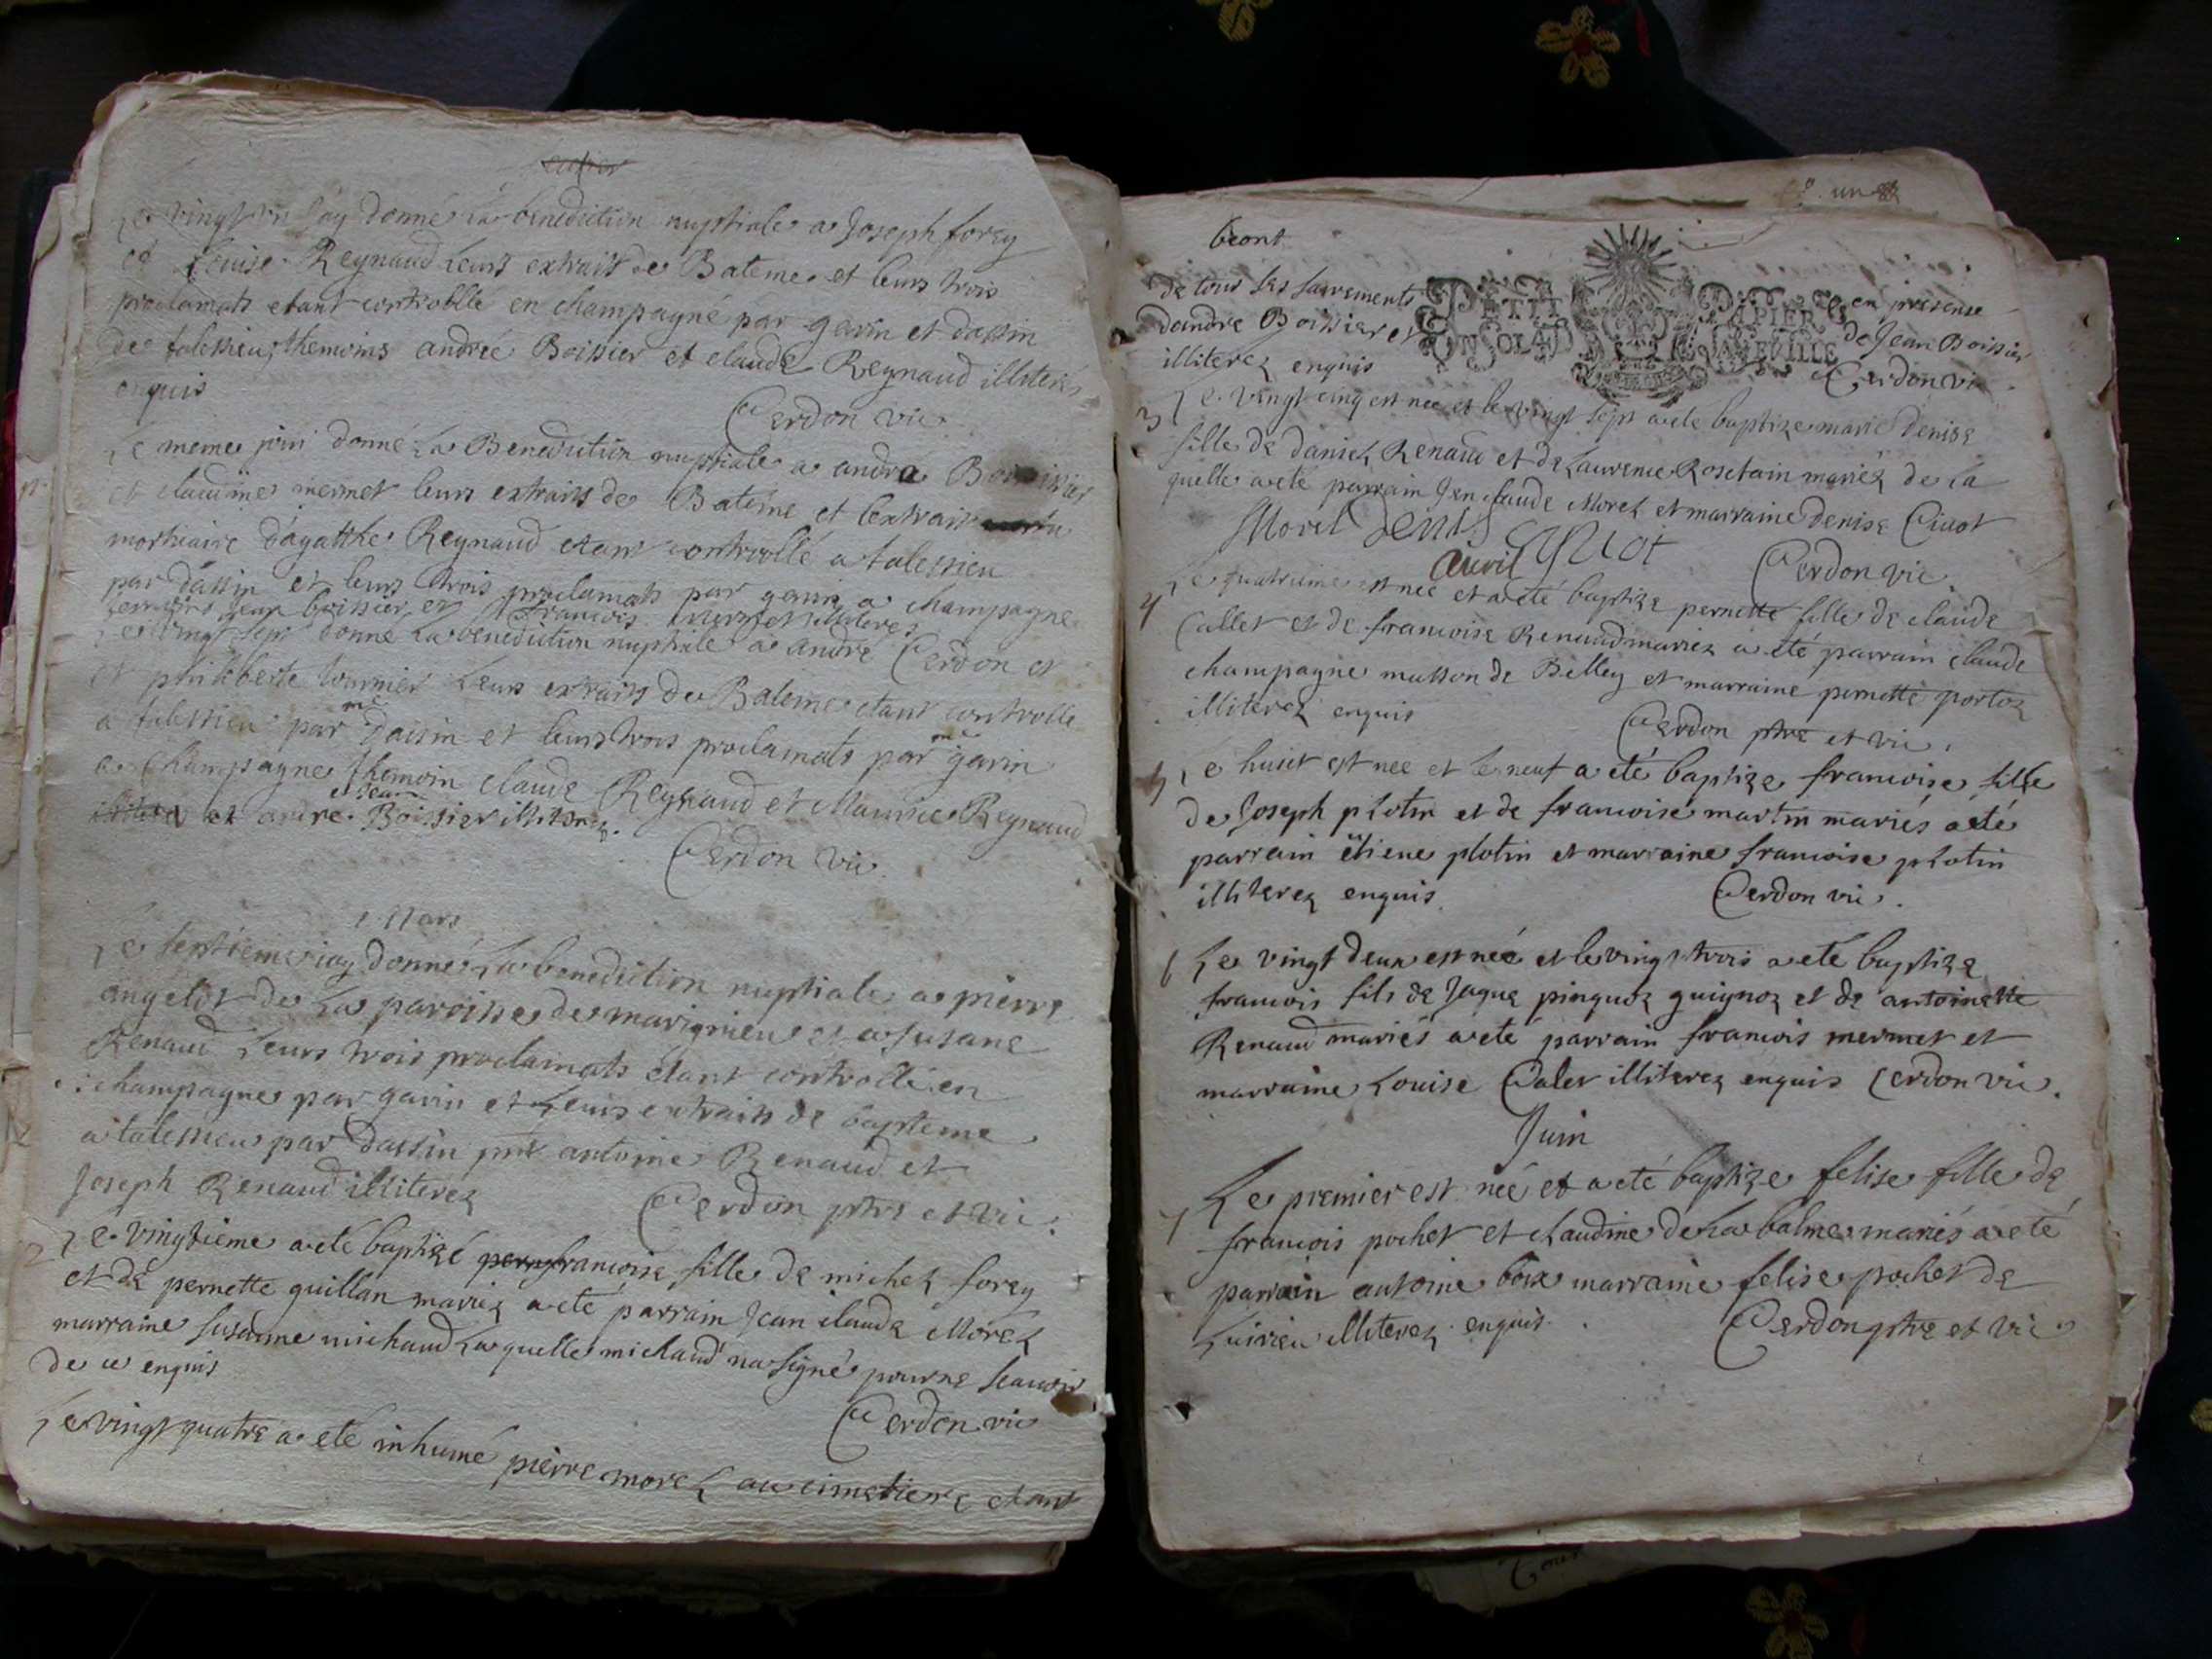 Le vingt un jay donné la benediction nuptiale a Joseph forey
et Louise Reynaud leurs extrait de Bateme et leurs trois
proclamats etant controllé en champagne par gavin et dassin
de talessieu, themoins andree Boissier et claude Reynaud illiterés
enquis
Cerdon vic
Le meme jour donné la Benediction nuptiale a andre Boissier
et claudine mermet leurs extraits de Batéme et lextrait
mortuaire dágatthe Reynaud etant controollé a talessieu
par dassin et leurs trois proclamats par gavin a champagne
temoins jean boissier et francois mermet illiteres
Le vingt sept donné la benediction nuptiale a andré Cerdon et
et philiberte warnier leurs extraits de Bateme etant controlle
a talessieu par me dassin et leurs trois proclamats par me gavin
a Champagne themoin claude Reynaud et Maurice Reynaud
et andre et Jean Boissier illiterez.
Cerdon vic.
Mars
Le septieme jay donné la benediction nuptiale a pierre
angelot de la paroisse de marignieu et a susane
Renaud leurs trois proclamats étant controllé en
champagne par gavin et leurs extraits de bapteme
a talessieu par dassin pnt antoine Renaud et
Joseph Renaud illiterez
Cerdon ptre et vic.
2 Le vingtieme a eté baptizé francoise fille de michel forey
et de pernette quillan mariez a eté parrain Jean claude Morel
marraine susanne michaud la quelle michaud na signé pour ne scavoir
de ce enquis
Cerdon vic
Le vingt quatre a eté inhumé pierre morel au cimetiere etant
un
beont
de tous les sacrements
PETIT PAPIER
en presense
dandre Boissier et
UN SOL LA FEUILLE
de Jean Boissier
illiterez enquis
Cerdon vic
3 Le vingt cinq est neé et le vingt sept a eté baptize marie denise
fille de daniel Renaud et de Laurence Rosetain mariéz de la
quelle a eté parrain Jean claude Morel et marraine denise Civot
Morel denise Civot
Cerdon vic
Avril
4 Le quatrieme est neé et a eté baptize pernette fille de claude
Callet et de francoise Renaud mariez a été parrain claude
champagne masson de Belley et marraine pernette portoz
illiterez enquis
Cerdon ptre et vic.
5 Le huict est nee et le neuf a eté baptize francoise fille
de Joseph plotin et de francoise martin mariés a eté
parrain etiene plotin et marraine francoise plotin
illiterez enquis
Cerdon vic.
6 Le vingt deux est neé et le vingt trois a eté baptize
francois fils de Jaque pinguoz guignoz et de antoinette
Renaud mariés a eté parrain francois mermet et
marraine Louise Calet illiterez enquis Cerdon vic.
Juin
7 Le premier est neé et a eté baptize felise fille de
francois pochet et claudine de la balme mariés a eté
parrain antoine marraine felise pochet de
illiterez enquis.
Cerdon ptre et vic.